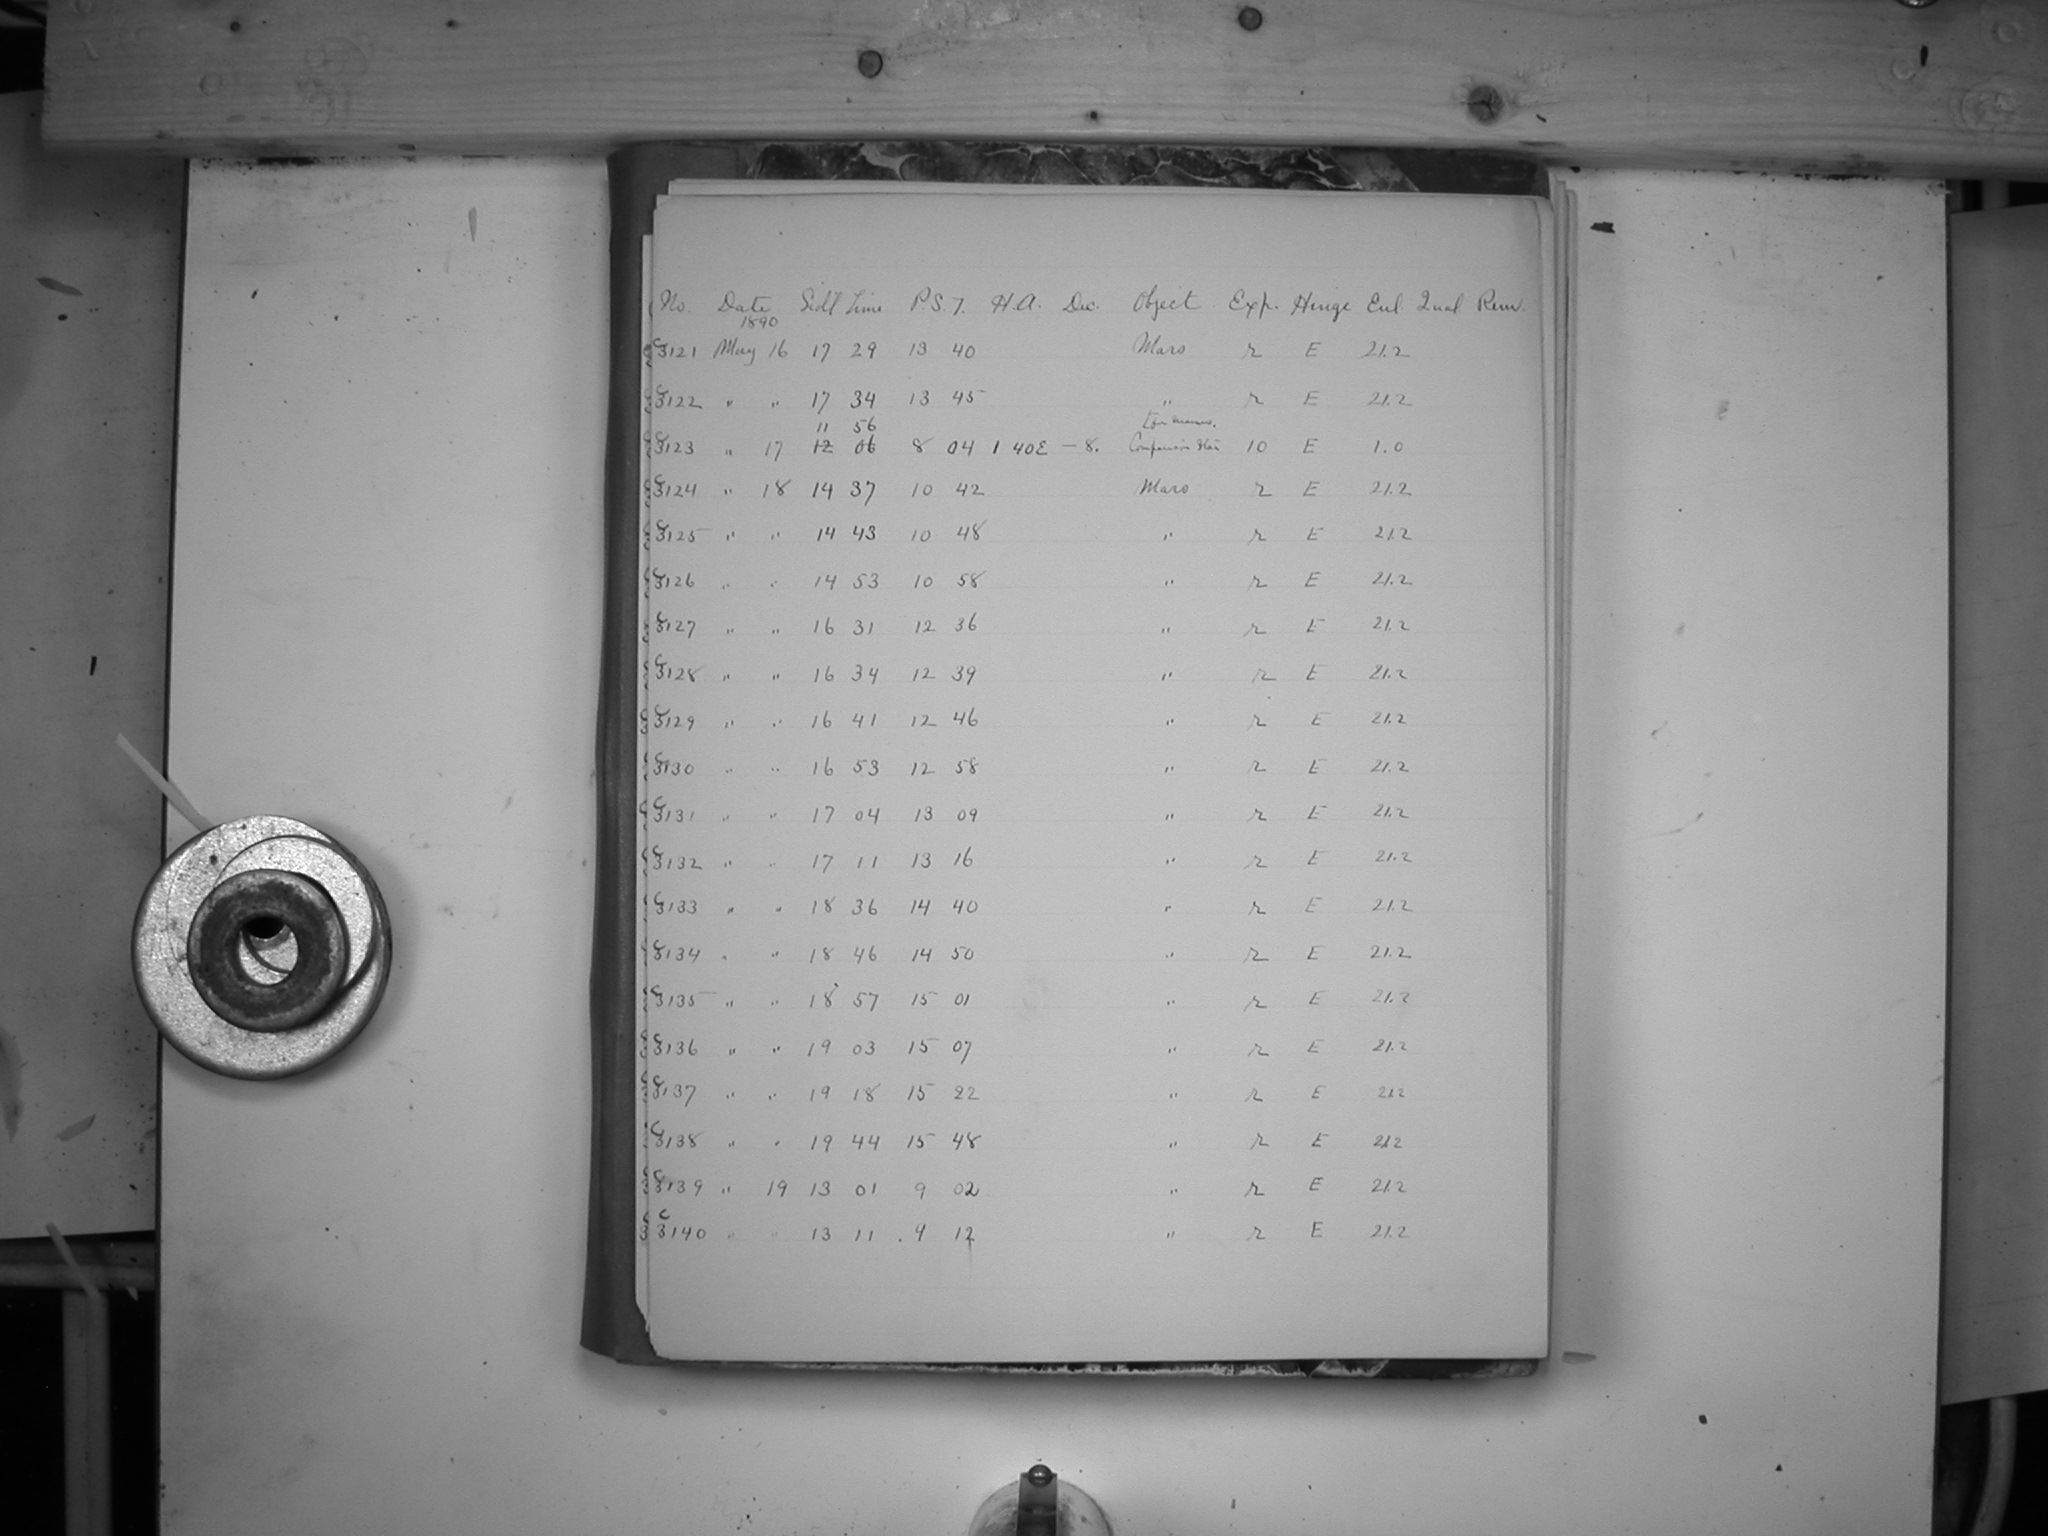 No. Date Sidl Time P.S.T. H.A. Dec. Object Exp. Hinge Enl. Qual Rem.
1890
C 3121 May 16 17 29 13 40 Mars r E 21.2
C 3122 " " 17 34 13 45 " r E 21.2
11 56 for
C 3123 " 17 12 06 8 04 1 40E -8. Comparison Star 10 E 1.0
C 3124 " 18 14 37 10 42 Mars r E 21.2
C 3125 " " 14 43 10 48 " r E 21.2
C 3126 " " 14 53 10 58 " r E 21.2
C 3127 " " 16 31 12 36 " r E 21.2
C 3128 " " 16 34 12 39 " r E 21.2
C 3129 " " 16 41 12 46 " r E 21.2
C 3130 " " 16 53 12 58 " r E 21.2
C 3131 " " 17 04 13 09 " r E 21.2
C 3132 " " 17 11 13 16 " r E 21.2
C 3133 " " 18 36 14 40 " r E 21.2
C 3134 " " 18 46 14 50 " r E 21.2
C 3135 " " 18 57 15 01 " r E 21.2
C 3136 " " 19 03 15 07 " r E 21.2
C 3137 " " 19 18 15 22 " r E 21.2
C 3138 " " 19 44 15 48 " r E 21.2
C 3139 " 19 13 01 9 02 " r E 21.2
C 3140 " " 13 11 9 12 " r E 21.2